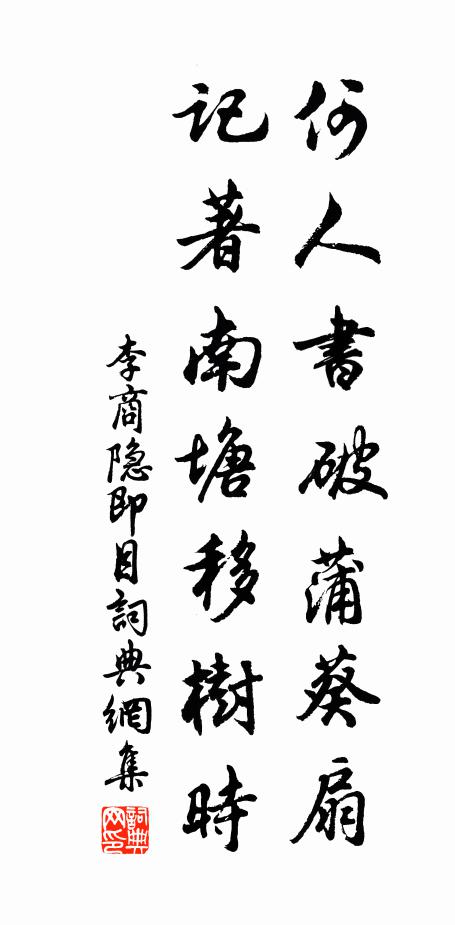 何人書破蒲葵扇
記著南塘移樹時
李商隐即目詞典網集
詞典
网印